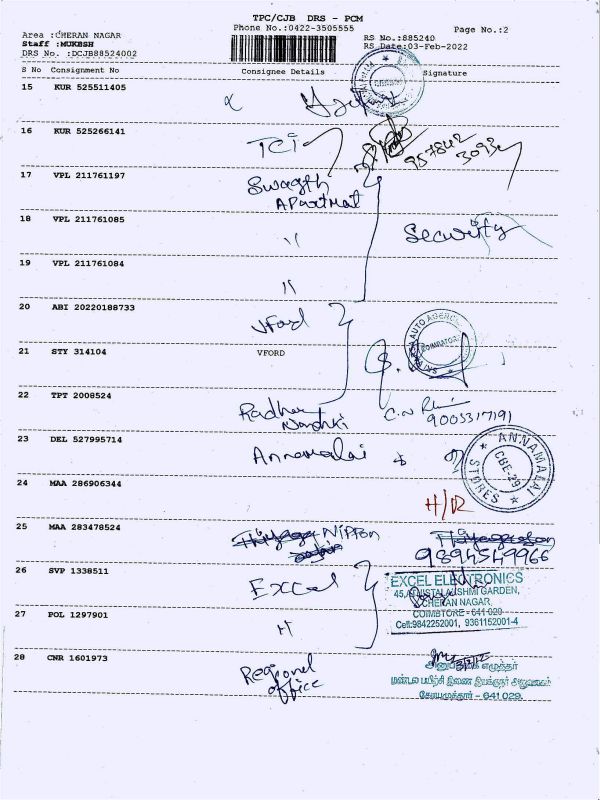 TPC/CJB DRS - PCM
Phone No.:0422-3505555
Page No.:2
Area :CHERAN NAGAR
Staff :MUKESH
DRS No. :DCJB88524002
RS No.:885240
RS Date:03-Feb-2022
S No Consignment No Consignee Details Signature
15 KUR 525511405
16 KUR 525266141 TCI 957842
3093
17 VPL 211761197 Swagth
APartmat
18 VPL 211761085 " Security
19 VPL 211761084 "
20 ABI 20220188733 VFord
21 STY 314104 VFORD
22 TPT 2008524 Radha
9003317191
23 DEL 527995714 Annamalai
ANNAMALAI
STORES
CBE-29
24 MAA 286906344 H/R
25 MAA 283478524 Nippon
9894549966
26 SVP 1338511 Excel
EXCEL ELECTRONICS
45, ASHTALAKSHMI GARDEN,
CHERAN NAGAR,
COIMBTORE - 641 029
Cell:9842252001, 9361152001-4
27 POL 1297901 "
28 CNR 1601973 Regional
office
எழுத்தர்
மண்டல பயிற்சி இணை இயக்குநர் அலுவலகம்
கோயமுத்தூர் - 641 029.